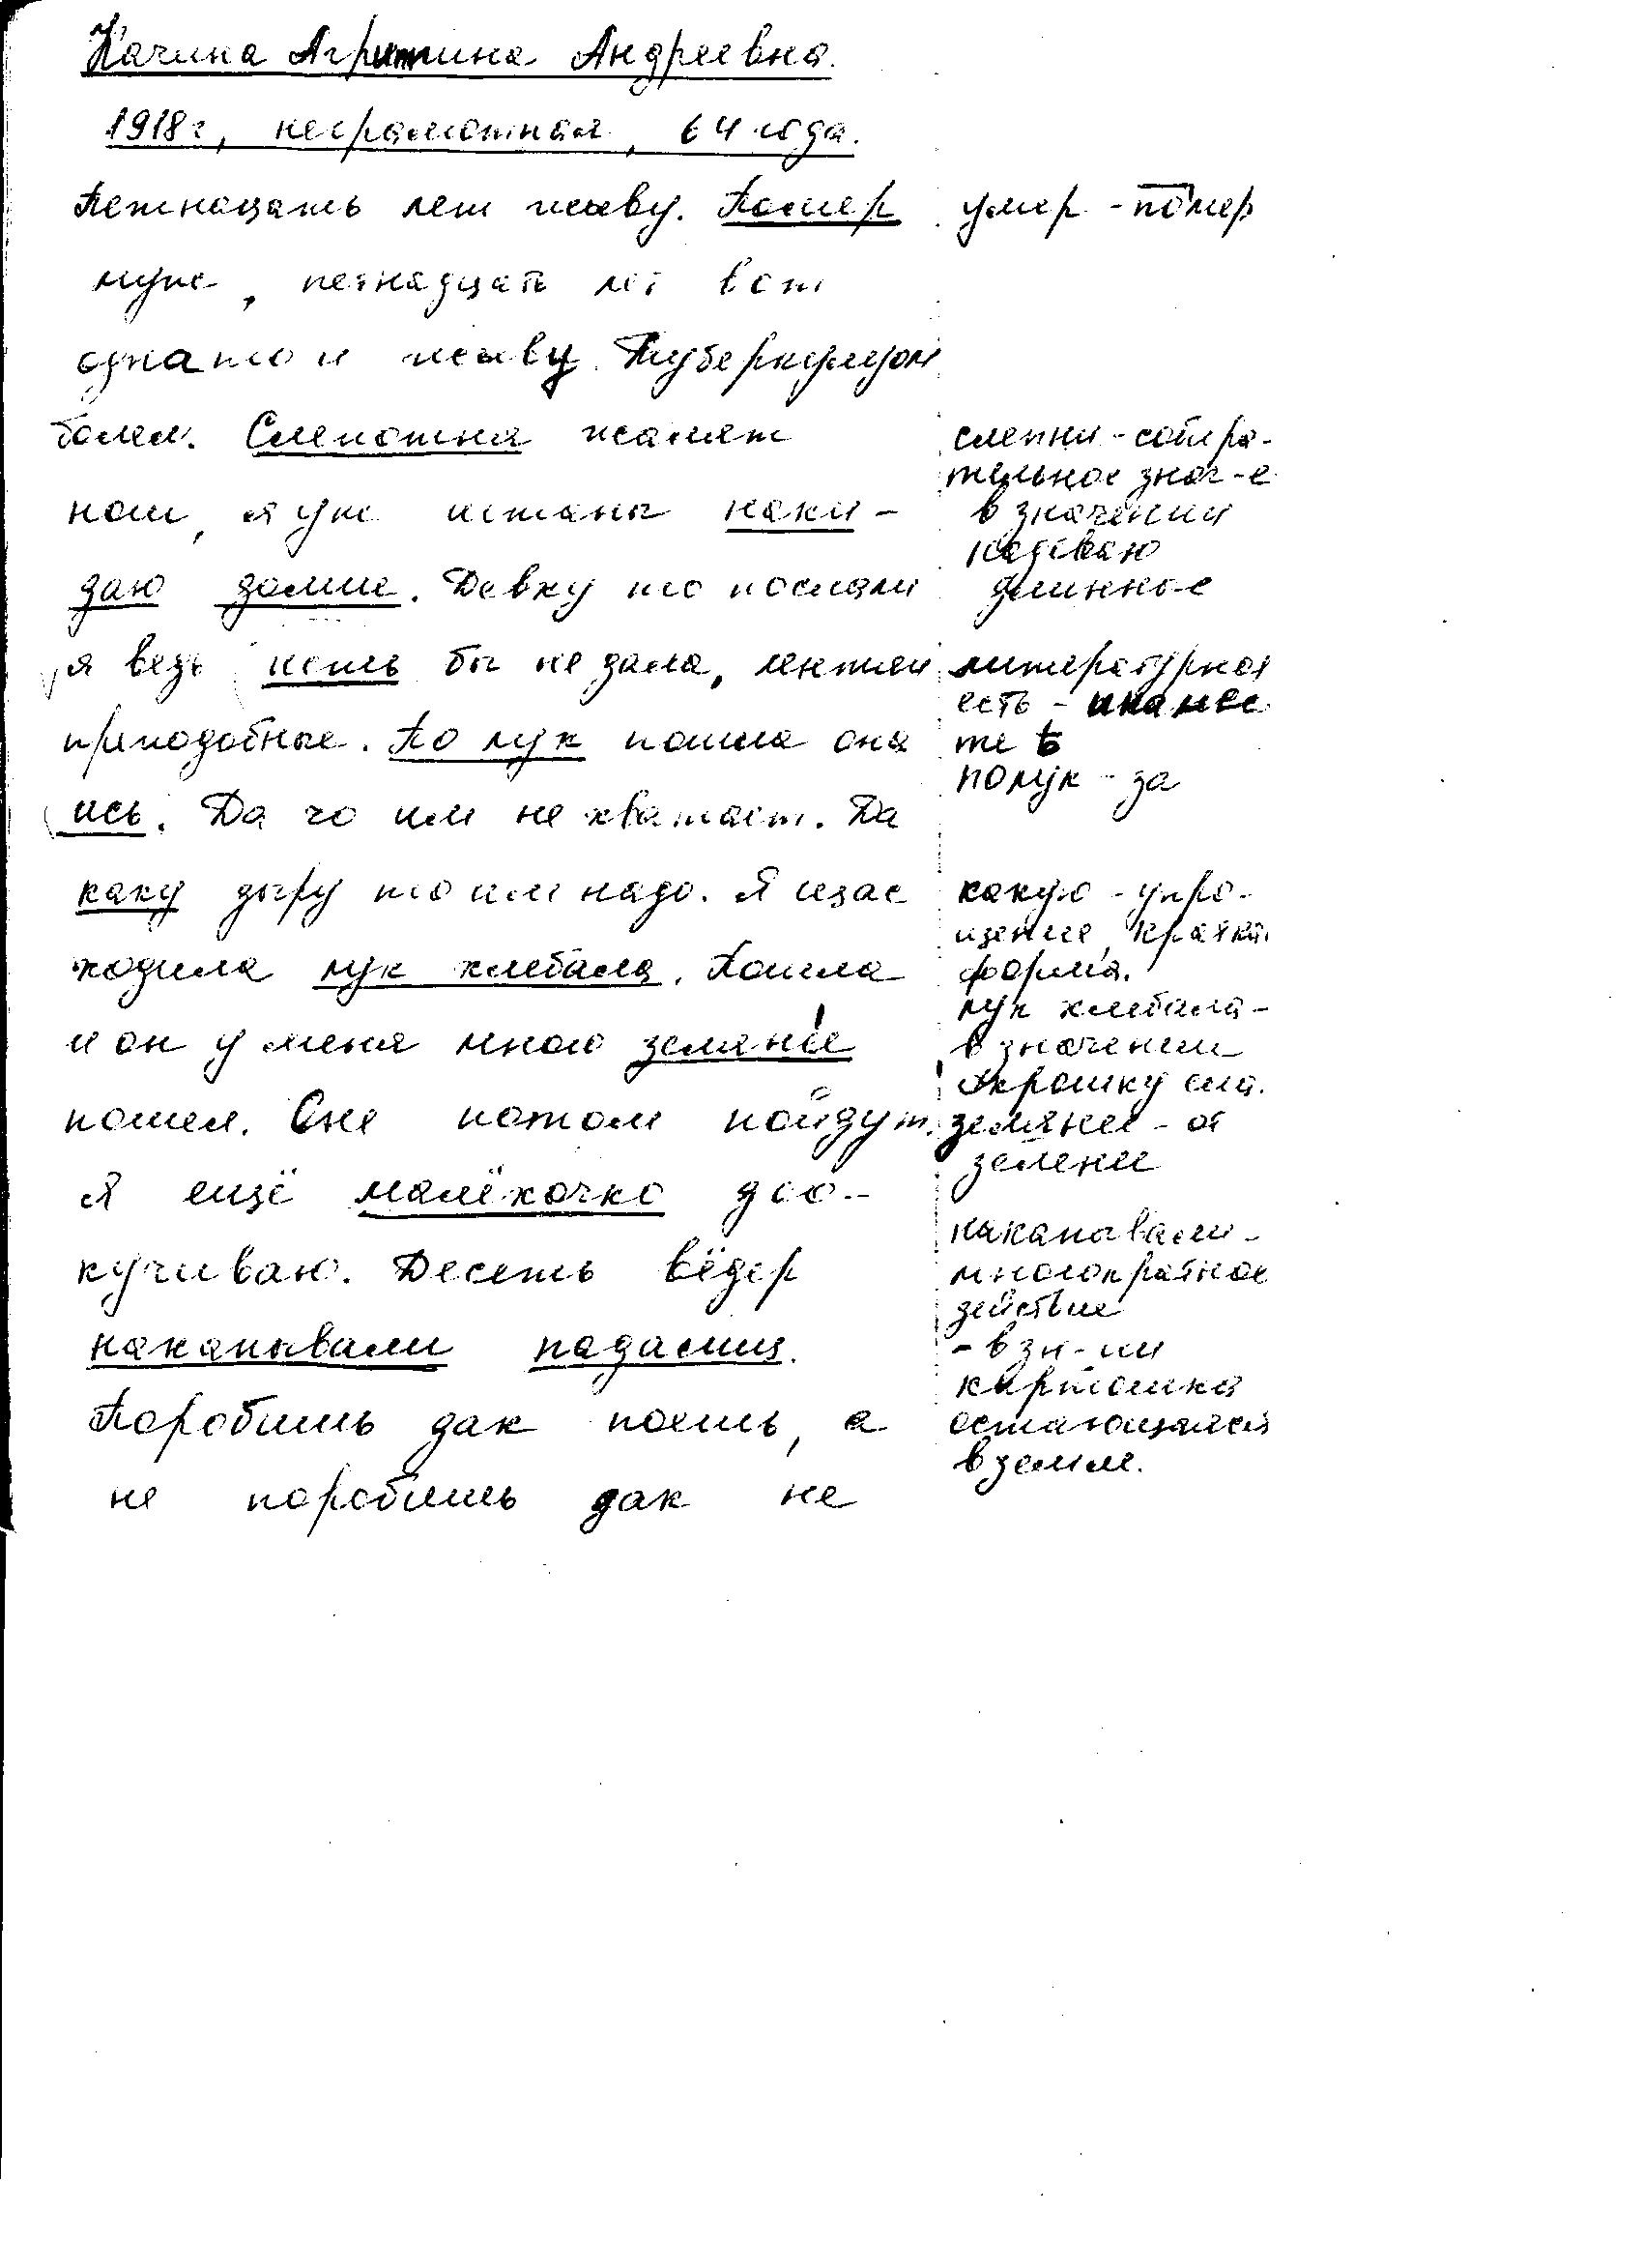 Качина Агрипина Андреевна.
1918г, неграмотная, 64 года.
Петнацать лет жыву. Помер
муж, петнадцать лет вот
одна то и жыву. Туберкулёзом
болел. Слепотня жалят
ном, я уж штаны наки-
даю долги. Девку то послали
я ведь исть бы не дала, лентяи
преподобные. По лук пошла она
ись. Да чо им не хватает. Да
каку дыру то им надо. Я щас
ходила лук хлебала. Пошла
и он у меня много земяные
пошел. Оне потом пойдут.
Я ещё малёхочко доо-
кучиваю. Десеть вёдер
накапывали падалиц.
Поробишь дак поешь, а
не поробишь дак не
умер - помер
слепни - собира-
тельное знач-е
в значении
надеваю
длинные
литературная
есть -
те ь
по лук - за
какую - упро-
щение, кратка.
форма.
лук хлебала -
в значении
окрошку ела.
земяные - от
зелени
накапывали -
многократное
действие
- в зн-ии
картошка
остающаяся
в земле.